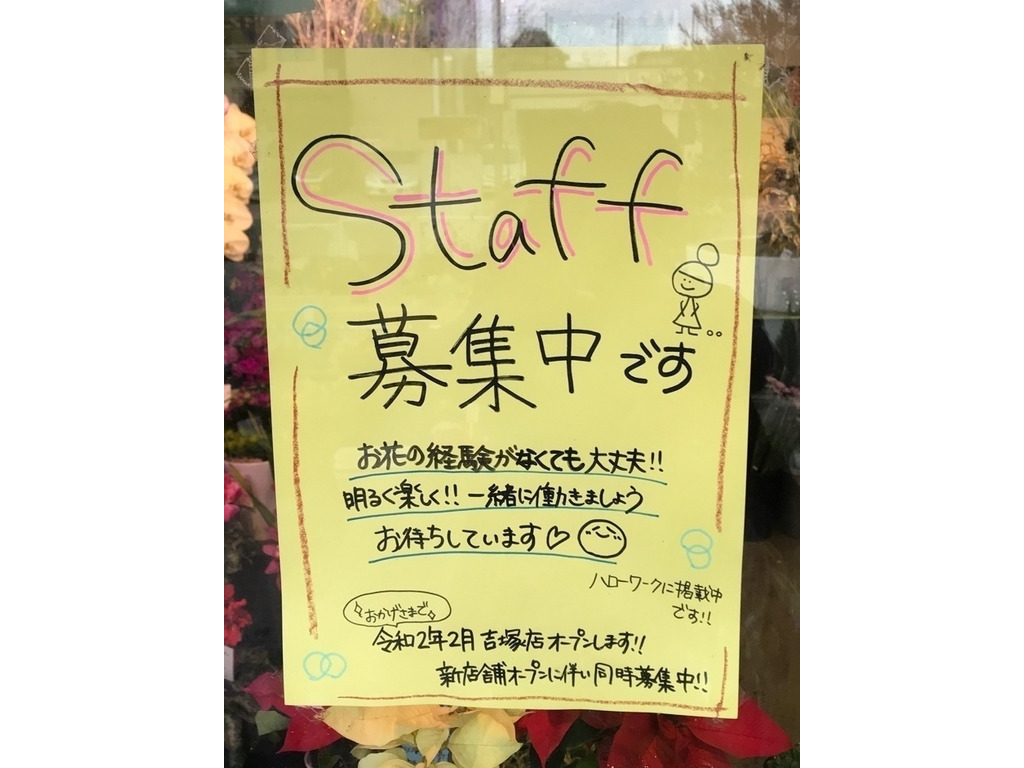 Staff
募集中です
お花の経験がなくても大丈夫!!
明るく楽しく!! 一緒に働きましょう
お待ちしています♡
ハローワークに掲載中
です!!
おかげさまで
令和2年2月 吉塚店オープンします!!
新店舗オープンに伴い同時募集中!!